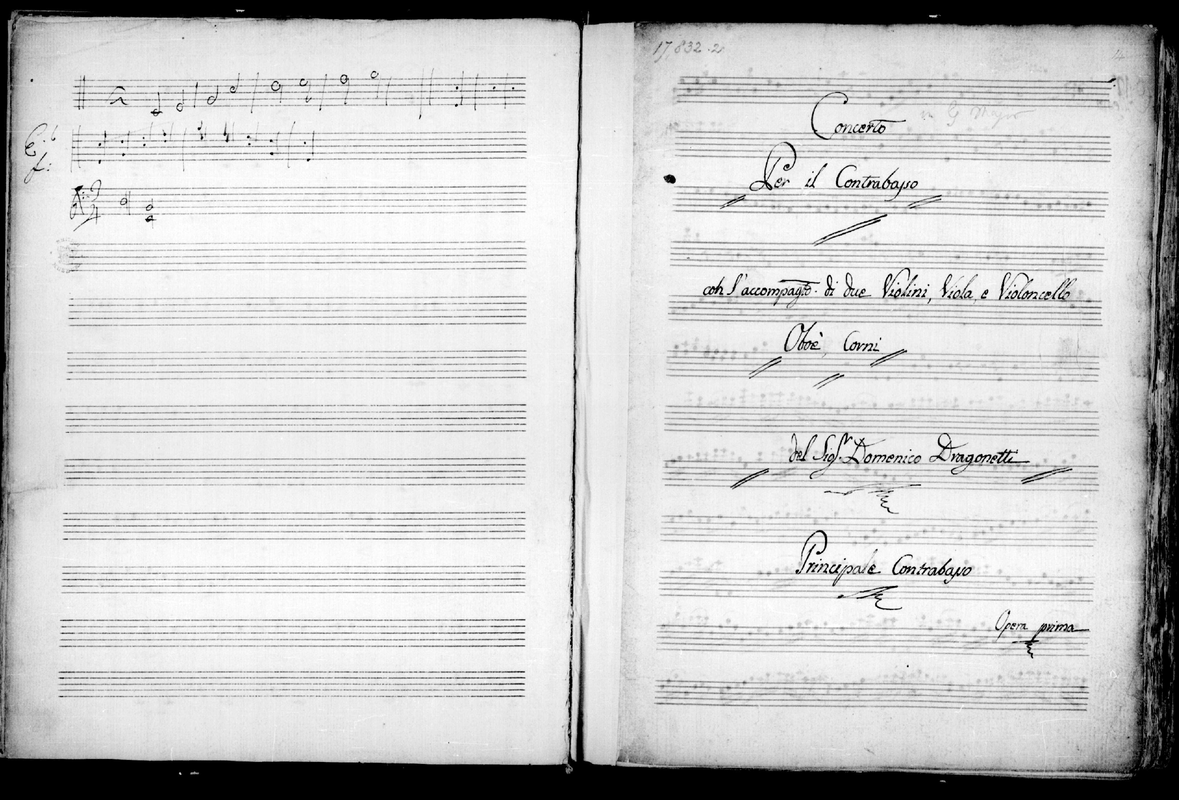 17,832.2
in G Major
Concerto
Per il Contrabasso
con l'accompagto. di due Violini, Viola, e Violoncello
Oboè, Corni
del Sigr. Domenico Dragonetti
Principale Contrabasso
Opera prima